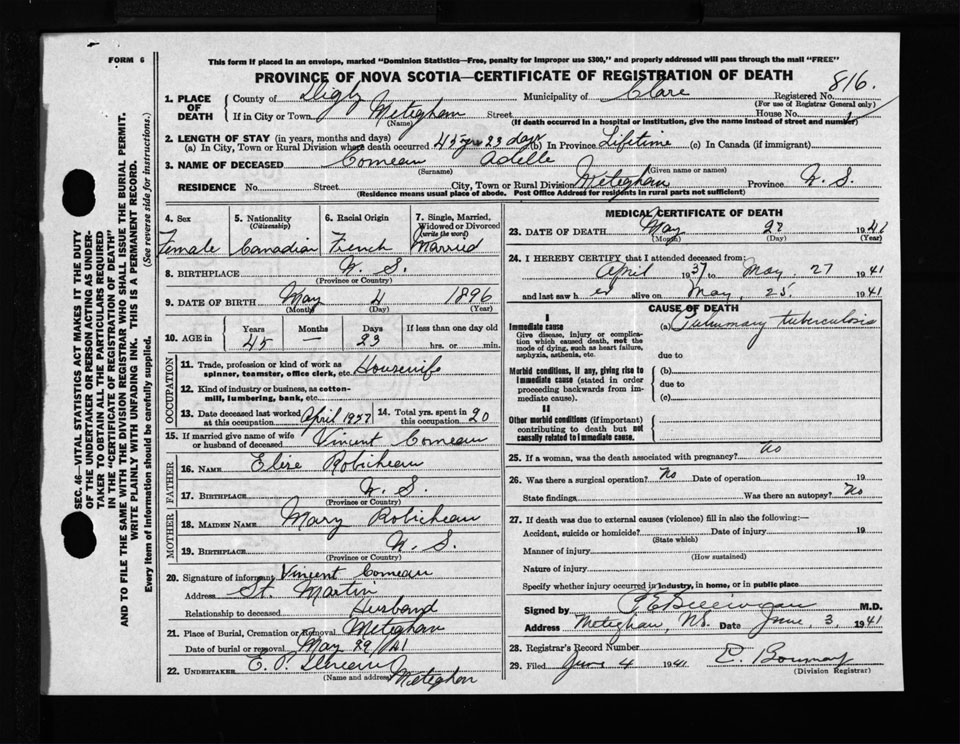 FORM 6
This form if placed in an envelope, marked "Dominion Statistics—Free, penalty for improper use $300," and properly addressed will pass through the mail "FREE"
PROVINCE OF NOVA SCOTIA—CERTIFICATE OF REGISTRATION OF DEATH
816.
1. PLACE OF DEATH County of Digby Municipality of Clare Registered No.
(For use of Registrar General only)
If in City or Town Meteghan Street House No.
(Name) (If death occurred in a hospital or institution, give the name instead of street and number)
2. LENGTH OF STAY (in years, months and days)
(a) In City, Town or Rural Division where death occurred 45 yrs 23 days (b) In Province Lifetime (c) In Canada (if immigrant)
3. NAME OF DECEASED Comeau Adelle
(Surname) (Given name or names)
RESIDENCE No. Street City, Town or Rural Division Meteghan Province N. S.
(Residence means usual place of abode. Post Office Address for residents in rural parts not sufficient)
4. Sex 5. Nationality (Citizenship) 6. Racial Origin 7. Single, Married, Widowed or Divorced (write the word)
Female Canadian French Married
8. BIRTHPLACE N. S.
(Province or Country)
9. DATE OF BIRTH May 4 1896
(Month) (Day) (Year)
10. AGE in Years Months Days If less than one day old
45 — 23 hrs. or min.
OCCUPATION
11. Trade, profession or kind of work as spinner, teamster, office clerk, etc. Housewife
12. Kind of industry or business, as cotton-mill, lumbering, bank, etc.
13. Date deceased last worked at this occupation April 1937 14. Total yrs. spent in this occupation 20
15. If married give name of wife or husband of deceased Vincent Comeau
FATHER
16. NAME Robicheau
17. BIRTHPLACE N. S.
(Province or Country)
MOTHER
18. MAIDEN NAME Mary Robicheau
19. BIRTHPLACE N. S.
(Province or Country)
20. Signature of informant Vincent Comeau
Address St. Martin
Relationship to deceased Husband
21. Place of Burial, Cremation or Removal Meteghan
Date of burial or removal May 29/41
22. UNDERTAKER E. P. Meteghan
(Name and address)
MEDICAL CERTIFICATE OF DEATH
23. DATE OF DEATH May 27 1941
(Month) (Day) (Year)
24. I HEREBY CERTIFY that I attended deceased from:
April 1937 to May 27 1941
and last saw h er alive on May 25 1941
CAUSE OF DEATH
I
Immediate cause (a) Pulmonary tuberculosis
Give disease, injury or complication which caused death, not the mode of dying, such as heart failure, asphyxia, asthenia, etc.
due to
Morbid conditions, if any, giving rise to immediate cause (stated in order proceeding backwards from immediate cause). (b)
due to
(c)
II
Other morbid conditions (if important) contributing to death but not causally related to immediate cause.
25. If a woman, was the death associated with pregnancy? no
26. Was there a surgical operation? No Date of operation 19
State findings Was there an autopsy? No
27. If death was due to external causes (violence) fill in also the following:—
Accident, suicide or homicide? Date of injury 19
(State which)
Manner of injury
(How sustained)
Nature of injury
Specify whether injury occurred in industry, in home, or in public place
Signed by M.D.
Address Meteghan, N.S. Date June 3, 1941
28. Registrar's Record Number
29. Filed June 4 1941
(Division Registrar)
SEC. 46—VITAL STATISTICS ACT MAKES IT THE DUTY
OF THE UNDERTAKER OR PERSON ACTING AS UNDER-
TAKER TO OBTAIN ALL THE PARTICULARS REQUIRED
IN THE "CERTIFICATE OF REGISTRATION OF DEATH"
AND TO FILE THE SAME WITH THE DIVISION REGISTRAR WHO SHALL ISSUE THE BURIAL PERMIT.
WRITE PLAINLY WITH UNFADING INK. THIS IS A PERMANENT RECORD.
Every item of information should be carefully supplied. (See reverse side for instructions.)